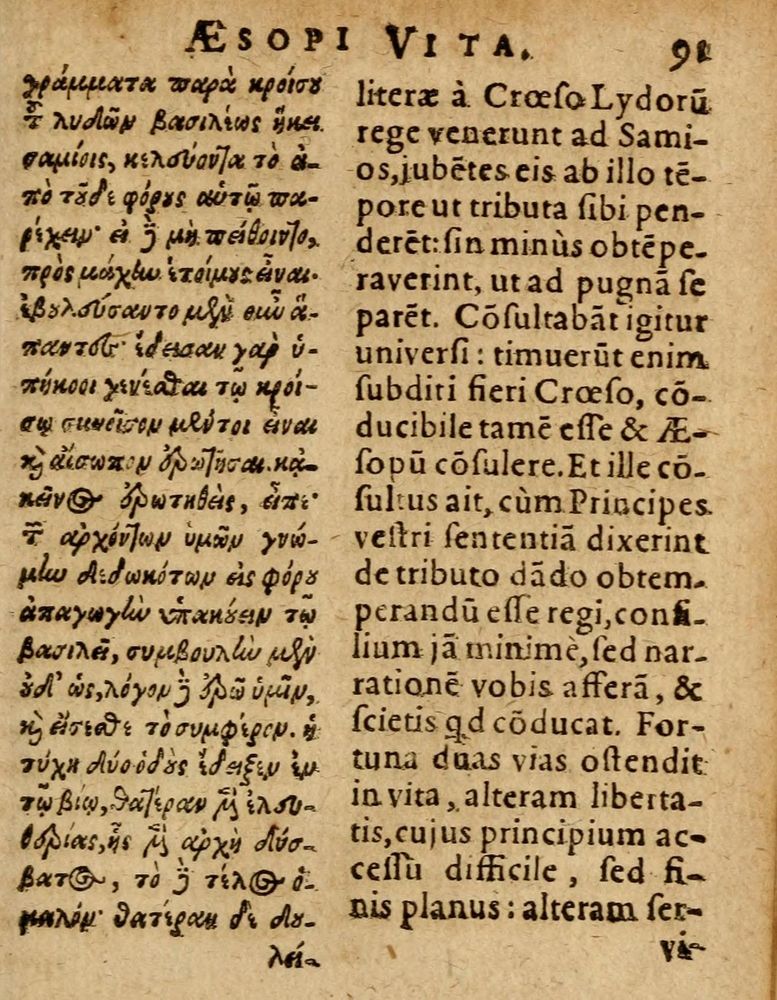 ÆSOPI VITA. 91
γράμματα παρὰ κροίσου
τ̃ λυδῶν βασιλέως ἥκει
σαμίοις, κελεύοντα τὸ ἀ-
πὸ τοῦδε φόρους αὐτῷ πα-
ρέχειν· εἰ ἢ μὴ πείθοιντο,
πρὸς μάχην ἑτοίμους εἶναι·
ἐβουλεύσαντο μὲν οὖν ἅ-
παντες· ἔδεισαν γὰρ ὑ-
πήκοοι γενέσθαι τῷ κροί-
σῳ συνεῖσον μέντοι εἶναι
καὶ αἴσωπον ἐρωτῆσαι. κἀ-
κεῖνος ἐρωτηθεὶς, εἶπε·
τ̃ ἀρχόντων ὑμῶν γνώ-
μην δεδωκότων εἰς φόρου
ἀπαγωγὴν ὑπακούειν τῷ
βασιλεῖ, συμβουλὴν μὲν
οὐδ' ὡς, λόγον δὲ ἐρῶ ὑμῖν,
καὶ εἴσεσθε τὸ συμφέρον. ἡ
τύχη δύο ὁδοὺς ἔδειξεν ἐν
τῷ βίῳ, θατέραν μὲν ἐλευ-
θερίας, ἧς μὲν ἀρχὴ δύσ-
βατος, τὸ δὲ τέλος ὁ-
μαλόν· θατέραν δὲ δου-
λεί-
literæ à Crœſo Lydorũ
rege venerunt ad Sami-
os, jubẽtes eis ab illo tẽ-
pore ut tributa ſibi pen-
derẽt: ſin minùs obtẽpe-
raverint, ut ad pugnã ſe
parẽt. Cõſultabãt igitur
univerſi: timuerũt enim
ſubditi fieri Crœſo, cõ-
ducibile tamẽ eſſe & Æ-
ſopũ cõſulere. Et ille cõ-
ſultus ait, cùm Principes
veſtri ſententiã dixerint
de tributo dãdo obtem-
perandũ eſſe regi, conſi-
lium jã minimè, ſed nar-
rationẽ vobis afferã, &
ſcietis qd cõducat. For-
tuna duas vias oſtendit
in vita, alteram liberta-
tis, cujus principium ac-
ceſſũ difficile, ſed fi-
nis planus: alteram ſer-
vi-